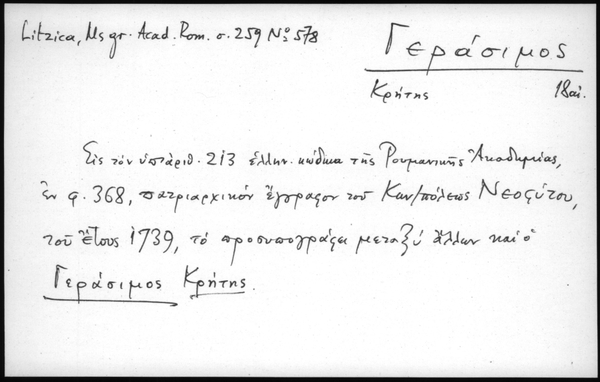 Litzica, Ms gr. Acad. Rom. σ. 259 Nº 578
Γεράσιμος
Κρήτης 18 αἰ.
Εἰς τὸν ὑπ' ἀριθ. 213 ἑλλην. κώδικα τῆς Ρουμανικῆς Ἀκαδημίας,
ἐν φ. 368, πατριαρχικὸν ἔγγραφον τοῦ Κων/πόλεως Νεοφύτου,
τοῦ ἔτους 1739, τὸ προσυπογράφει μεταξὺ ἄλλων καὶ ὁ
Γεράσιμος Κρήτης.